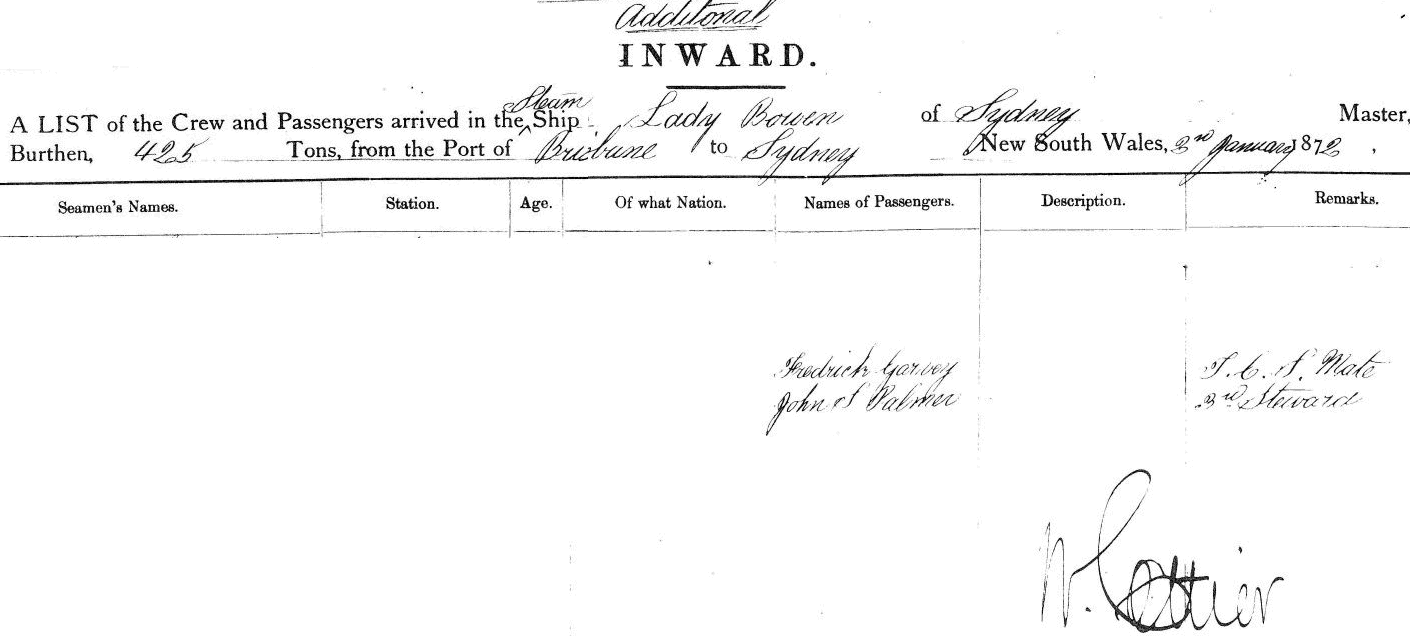 Additonal
INWARD.
A LIST of the Crew and Passengers arrived in the Steam Ship Lady Bowen of Sydney Master,
Burthen, 425 Tons, from the Port of Brisbane to Sydney New South Wales, 3rd January 1872,
Seamen's Names. Station. Age. Of what Nation. Names of Passengers. Description. Remarks.
Fredrick Garvey Mate
John S Palmer 3rd Steward
W. Cottier